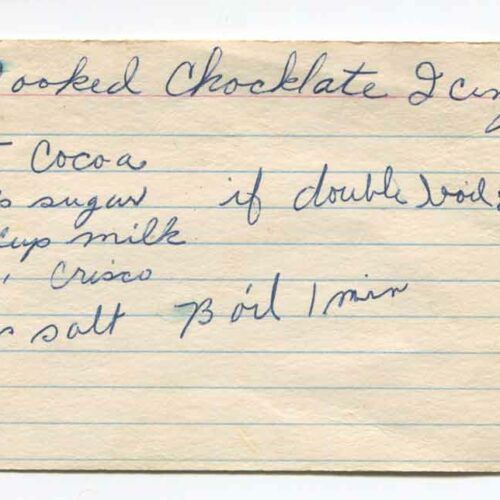 ooked Chocklate Icing
Cocoa
sugar if double boil
cup milk
Crisco
salt Boil 1 min